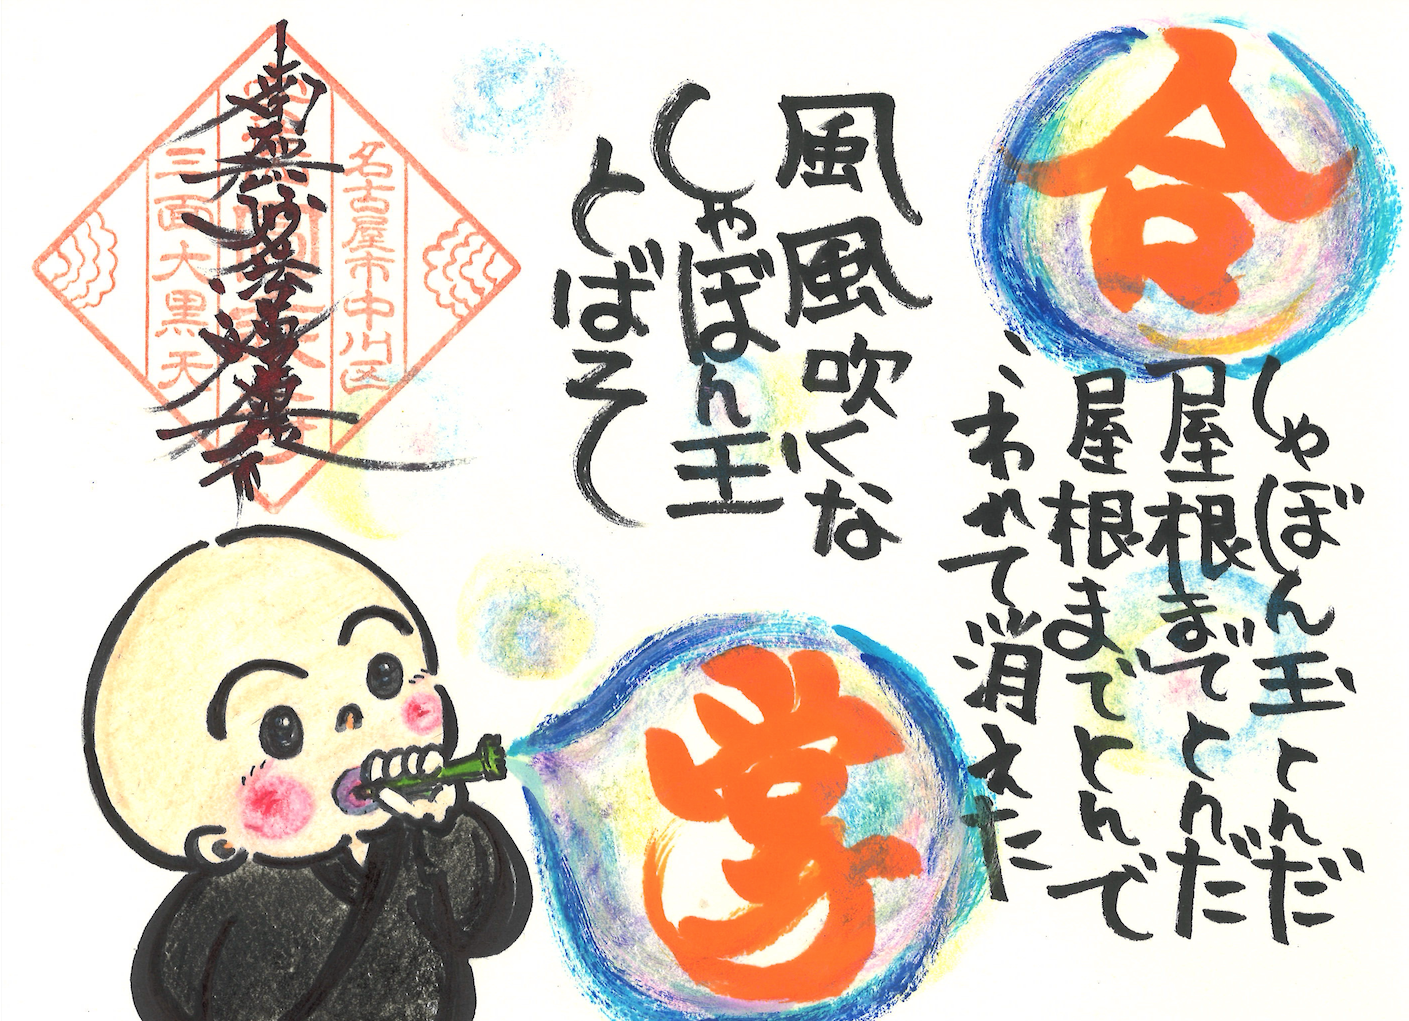 合
しゃぼん玉とんだ
屋根までとんだ
屋根までとんで
こわれて消えた
風風吹くな
しゃぼん玉
とばそ
掌
名古屋市中川区
三面大黒天
南無妙法蓮華